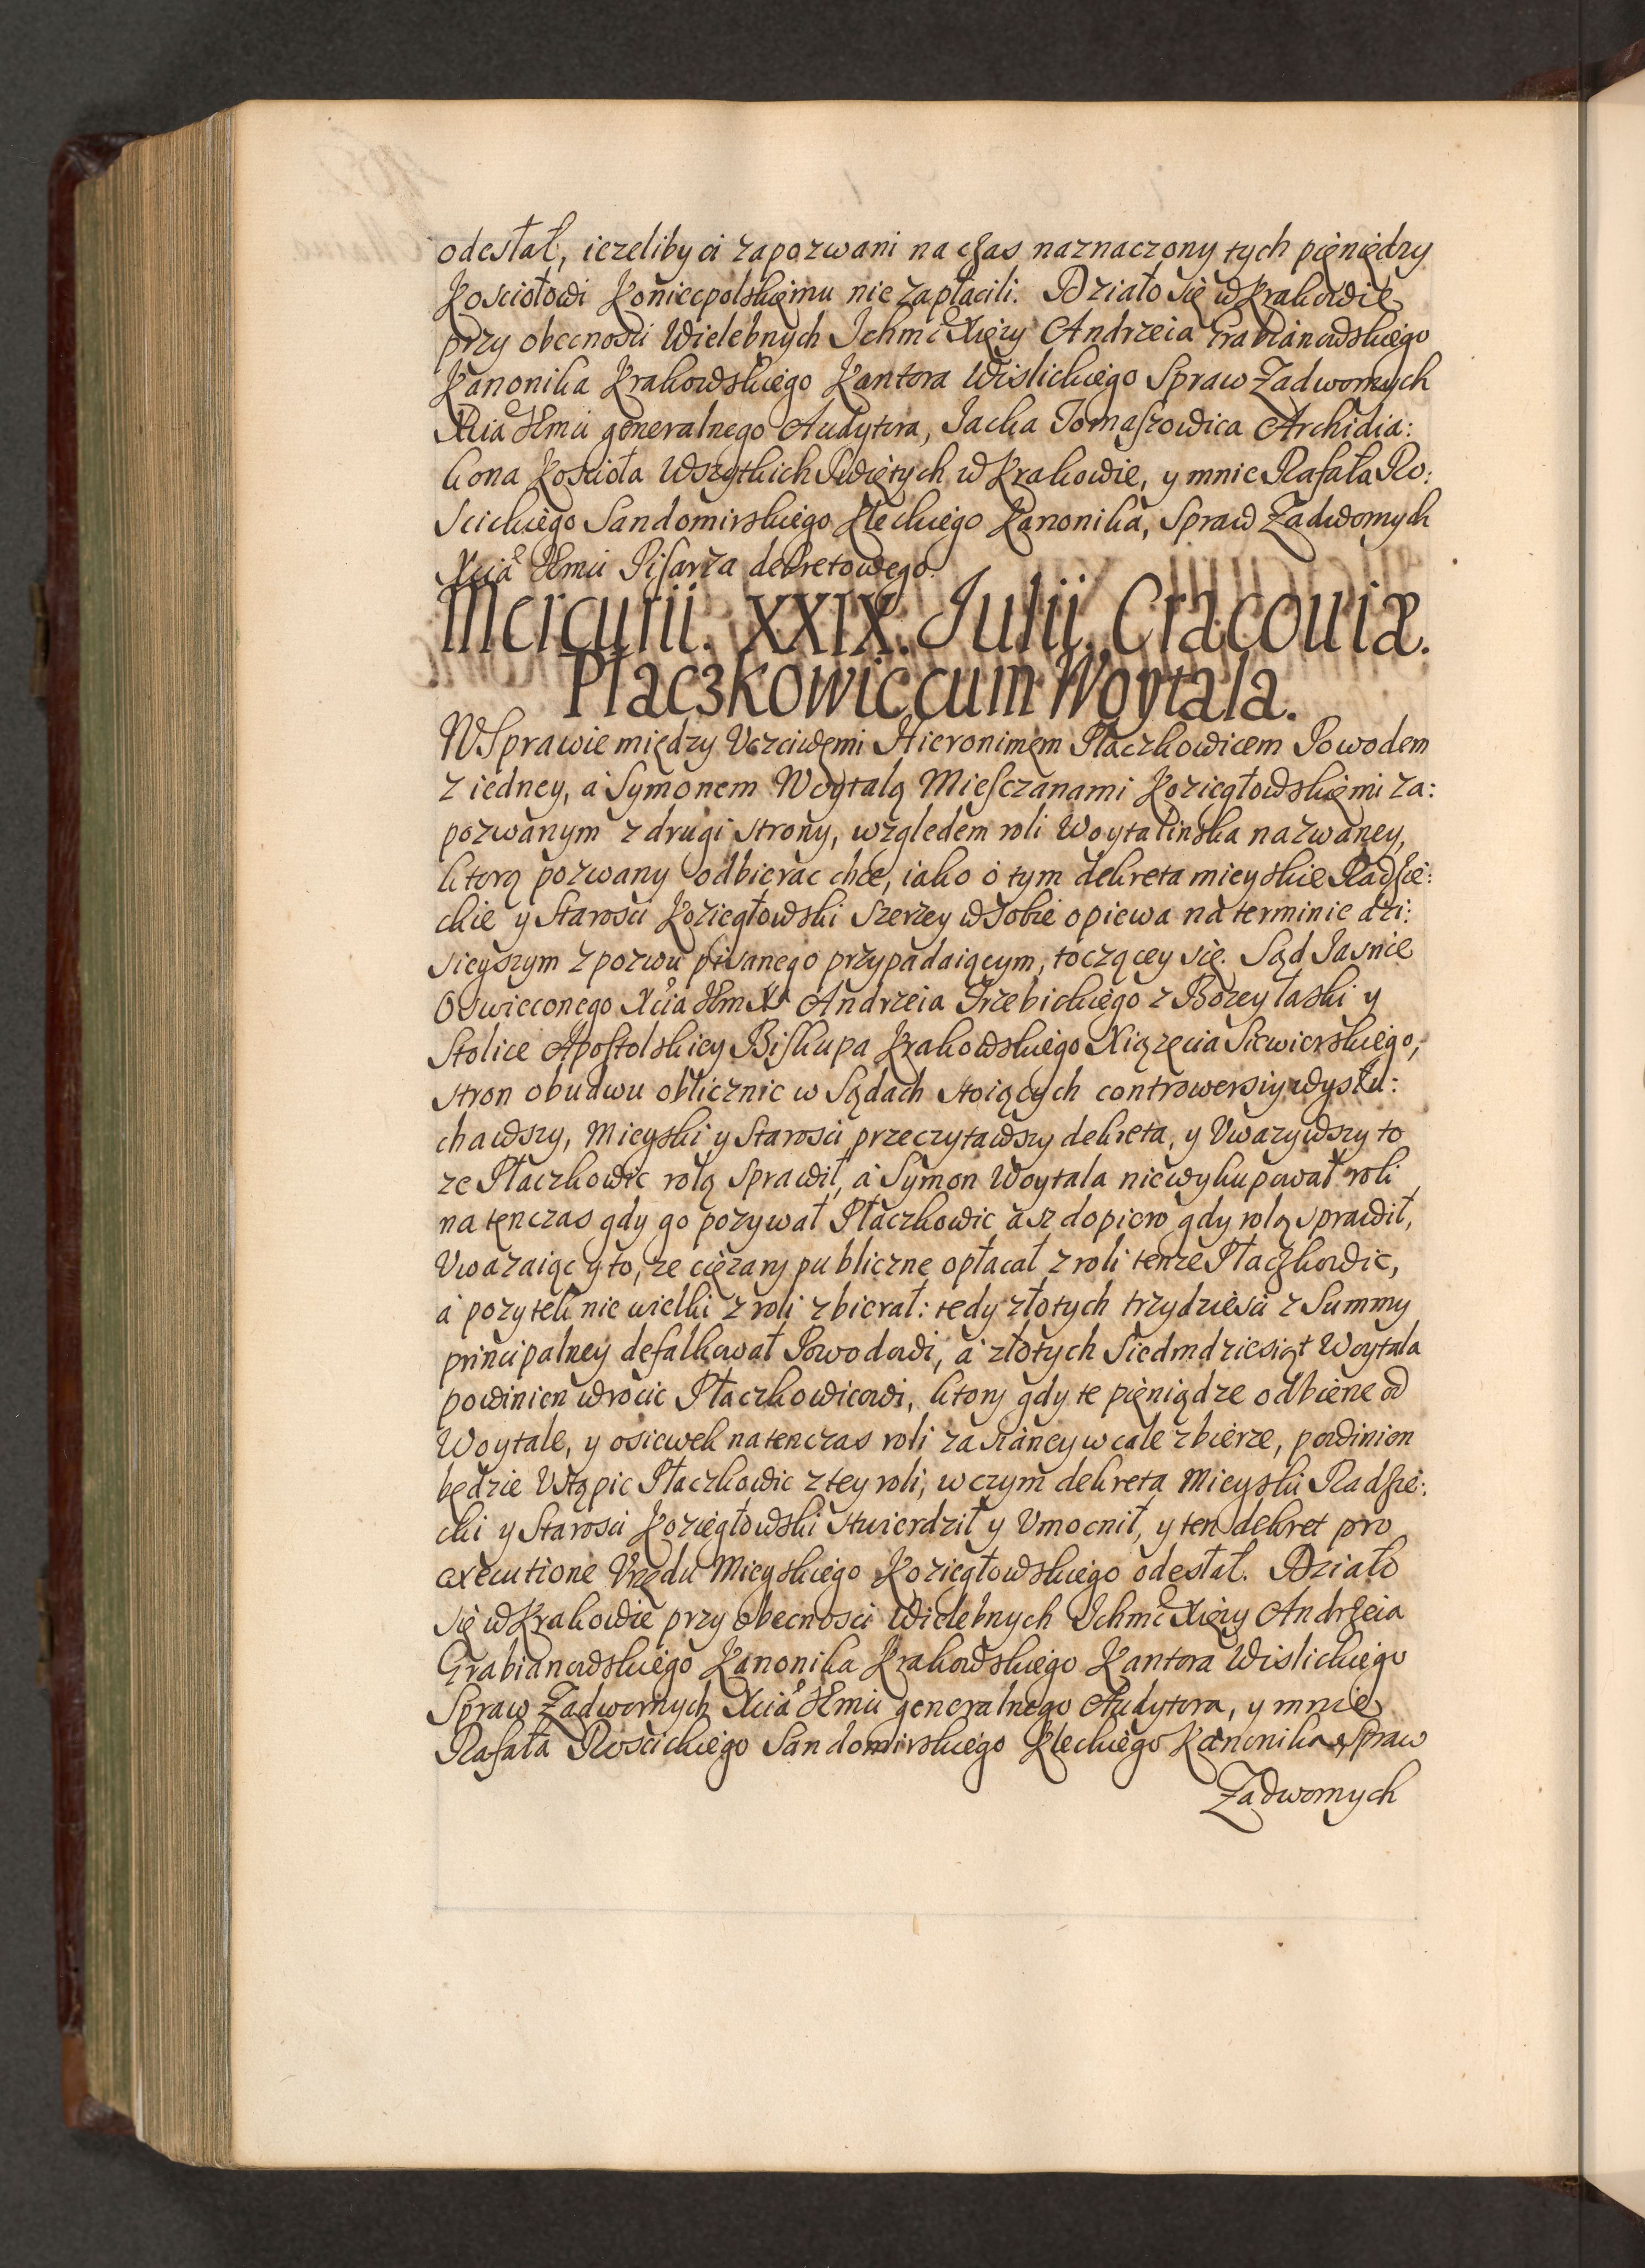 odesłał, iezeliby ci zapozwani na czas naznaczony tych pięniędzy
Kosciołowi Koniecpolskięmu nie zapłacili. Działo się w Krakowie
przy obecnosci Wielebnych Ichmci Xięzy Andrzeia Grabianowskiego
Kanonika Krakowskiego Kantora Wislickiego Spraw Zadwornych
Xcia JEmci generalnego Audytora, Jacka Tomaszowica Archidia:
kona Kościoła Wszytkich Swiętych w Krakowie, y mnie Rafała Ro:
scickiego Sandomirskiego Kleckiego Kanonika, Spraw Zadwornych
Xcia JEmci Pisarza dekretowego.
Mercurii. XXIX. Julii. Cracouiæ.
Płaczkowic cum Woytala.
W Sprawie między Vczciwęmi Hieronimęm Płaczkowicem Powodem
z iedney, a Symonem Woytalą Miesczanami Koziegłowskięmi za:
pozwanym z drugi strony, względem roli Woytalinska nazwaney,
ktorą pozwany odbierac chce, iako o tym dekreta mieyskie Radzie:
ckie y Starosci Koziegłowski szerzey w sobie opiewa na terminie dzi:
sieyszym z pozwu pisanego przypadaiącym, toczącey się. Sąd Jasnie
Oswieconego Xcia JEm X Andrzeia Trzebickiego z Bozey łaski y
Stolice Apostolskiey Biskupa Krakowskiego Xiązęcia Siewierskiego,
stron obudwu oblicznie w Sądach stoiących controwersiy wysłu:
chawszy, Mieyski y Starosci przeczytawszy dekreta, y Vwazywszy to
ze Płaczkowic rolą sprawił, a Symon Woytala niewykupował roli
na tęnczas gdy go pozywał Płaczkowic asz dopiero gdy rolą sprawił,
Vwazaiąc y to, ze cięzary publiczne opłacał z roli tenze Płaczkowic,
a pozytek nie wielki z roli zbierał: tedy złotych trzydziesci z Summy
principalney defalkował Powodowi, a złotych Siedmdziesiąt Woytala
powinien wrocic Płaczkowicowi, ktory gdy te pięniądze odbierze od
Woytale, y osiewek natenczas roli zasianey wcale zbierze, powinien
będzie Vstąpic Płaczkowic z tey roli, w czym dekreta Mieyski Radzie:
cki y Starosci Koziegłowski stwierdził y Vmocnił, y ten dekret pro
executione Vrzędu Mieyskiego Koziegłowskiego odesłał. Działo
się w Krakowie przy obecnosci Wielebnych Ichmci Xięzy Andrzeia
Grabianowskiego Kanonika Krakowskiego Kantora Wislickiego
Spraw Zadwornych Xcia JEmci generalnego Audytora, y mnie
Rafała Roscickiego Sandomirskiego Kleckiego Kanonika, Spraw
Zadwornych